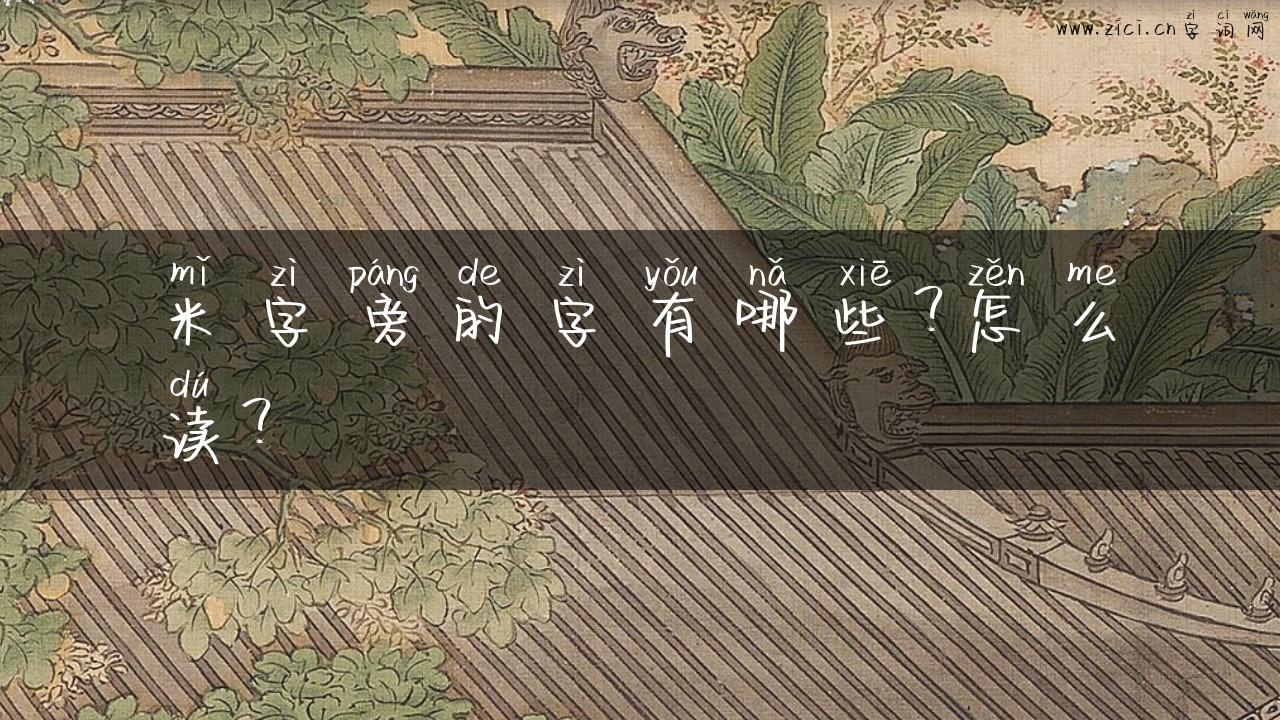 zì cí wǎng
www.zici.cn 字 词 网
mǐ zì páng de zì yǒu nǎ xiē zěn me
米 字 旁 的 字 有 哪 些 ? 怎 么
dú
读 ?